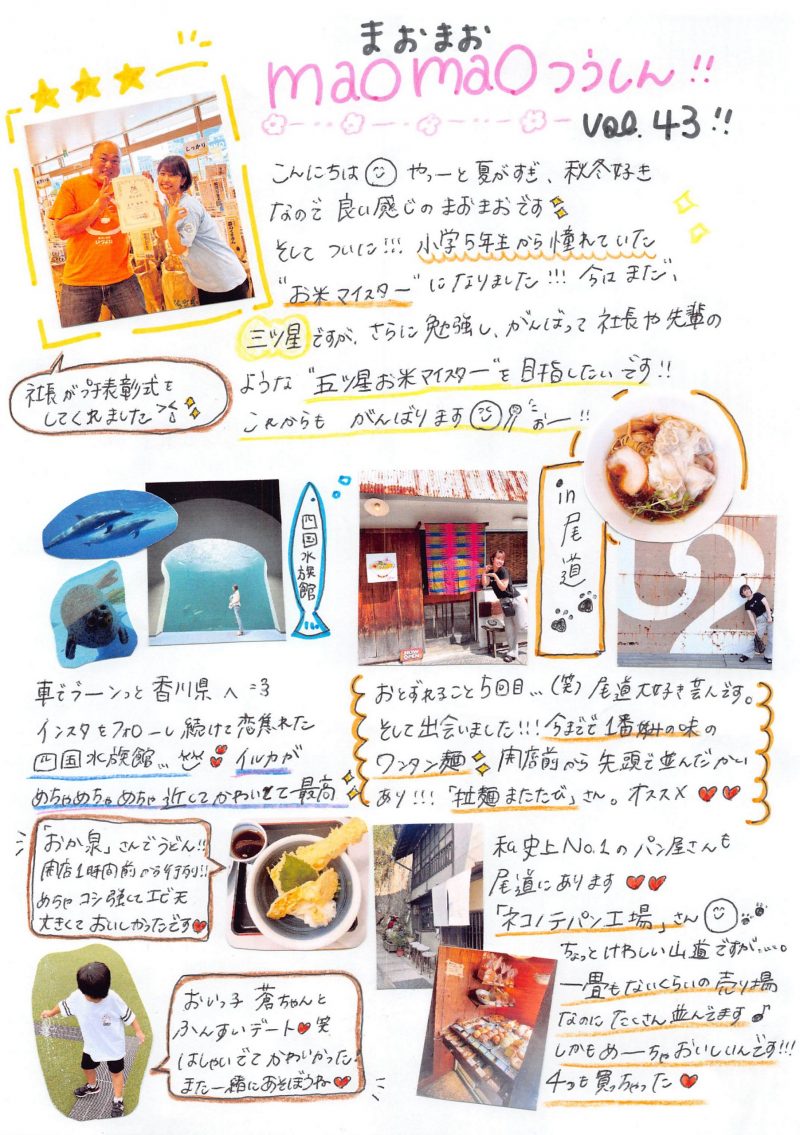 まおまお
maomaoつうしん!!
vol.43!!
こんにちは やっーと夏がすぎ、秋冬好き
なので 良い感じの まおまおです
そして ついに!!! 小学5年生から憧れていた
"お米マイスター"になりました!!! 今はまだ、
三ツ星ですが、さらに勉強し、がんばって 社長や先輩の
ような"五ツ星お米マイスター"を目指したいです!!
これからも がんばります おー!!
社長がプチ表彰式を
してくれました
四国水族館
in尾道
車でブーンっと 香川県へ
インスタをフォローし続けて恋焦れた
四国水族館... イルカが
めちゃめちゃめちゃ近してかわいせて最高
おとずれること5回目...(笑) 尾道大好き芸人です。
そして出会いました!!! 今までで1番の味の
ワンタン麺 開店前から先頭で並んだかい
あり!!! 「拉麺またたび」さん。オススメ
「おか泉」さんでうどん!!
開店1時間前から行列!!
めちゃコシ強くてエビ天
大きくておいしかったです
私史上No.1のパン屋さんも
尾道にあります
「ネコノテパン工場」さん
ちょっとけわしい山道ですが....。
一畳もないくらいの売り場
なのに たくさん並んでます♪
しかもめーちゃおいしいんです!!!
4つも買っちゃった
おいっ子 蒼ちゃんと
ふんすいデート 笑
はしゃいでて かわいかった!
また一緒にあそぼうね